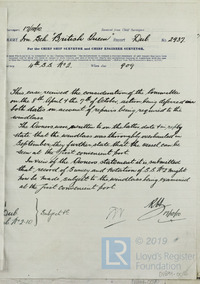 Iron Sch "British Queen" Report Hull No. 2937
FOR THE CHIEF SHIP SURVEYOR AND CHIEF ENGINEER SURVEYOR.
4th S.S. No 2. When due 9.09
This case received the consideration of the Committee
on the 8th April & the 7th of October, action being deferred on
both dates on account of repairs being required to the
windlass.
The Owners now, written to on the latter date in reply
state that the windlass was thoroughly overhauled
September, they further state that the vessel can be
seen at the first convenient port.
In view of the Owners statement it is submitted
that record of Survey and notation of S.S. No 2 might
now be made, subject to the windlass being examined
at the first convenient port.
Subject of
© 2019
Lloyd's Register
Foundation